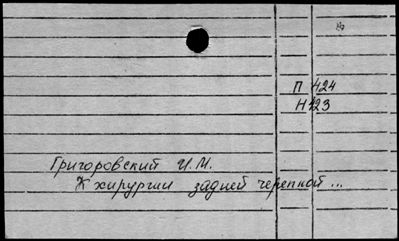 П 424
Н 123
Григоровский И.М.
К хирургии задней черепной ...